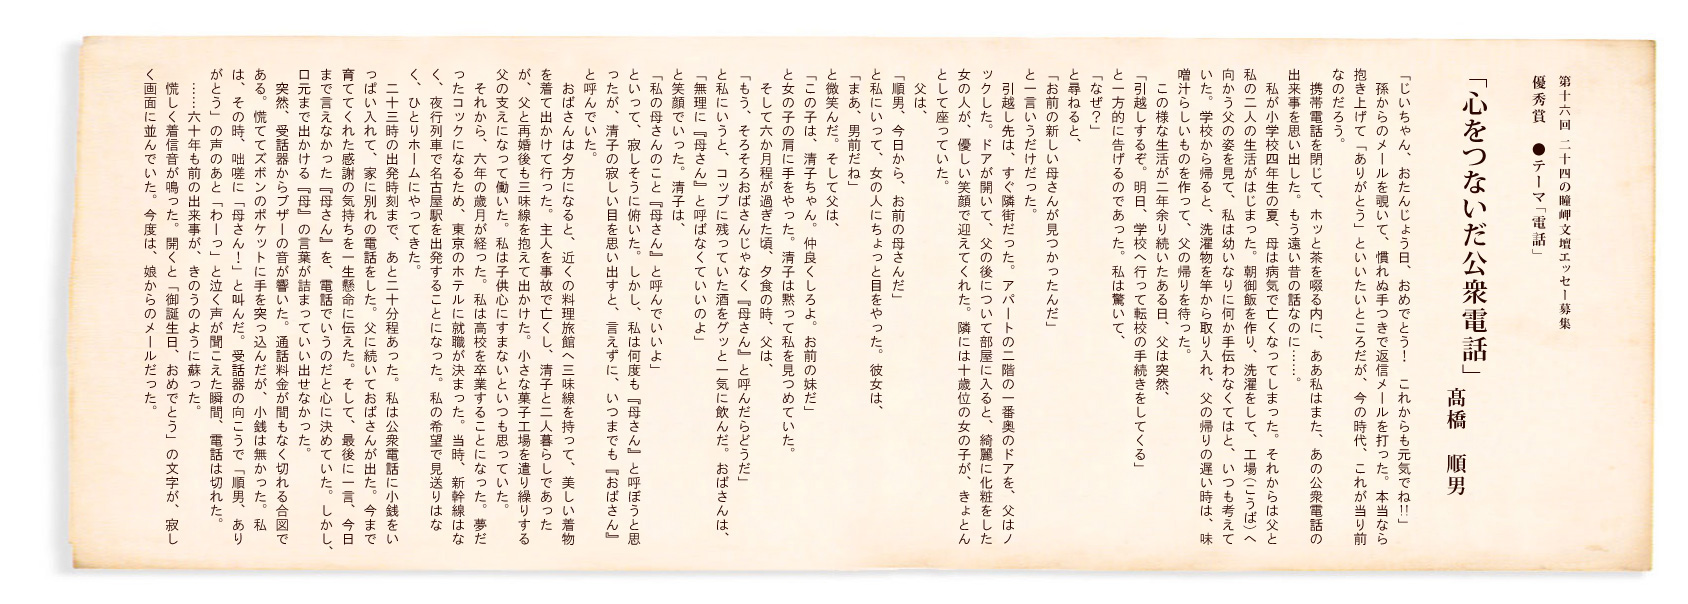 第十六回 二十四の瞳岬文壇エッセー募集
優秀賞 ●テーマ「電話」
「心をつないだ公衆電話」
髙橋 順男
「じいちゃん、おたんじょう日、おめでとう! これからも元気でね!!」
孫からのメールを覗いて、慣れぬ手つきで返信メールを打った。本当なら
抱き上げて「ありがとう」といいたいところだが、今の時代、これが当り前
なのだろう。
携帯電話を閉じて、ホッと茶を啜る内に、ああ私はまた、あの公衆電話の
出来事を思い出した。もう遠い昔の話なのに……。
私が小学校四年生の夏、母は病気で亡くなってしまった。それからは父と
私の二人の生活がはじまった。朝御飯を作り、洗濯をして、工場(こうば)へ
向かう父の姿を見て、私は幼いなりに何か手伝わなくてはと、いつも考えて
いた。学校から帰ると、洗濯物を竿から取り入れ、父の帰りの遅い時は、味
噌汁らしいものを作って、父の帰りを待った。
この様な生活が二年余り続いたある日、父は突然、
「引越しするぞ。明日、学校へ行って転校の手続きをしてくる」
と一方的に告げるのであった。私は驚いて、
「なぜ?」
と尋ねると、
「お前の新しい母さんが見つかったんだ」
と一言いうだけだった。
引越し先は、すぐ隣街だった。アパートの二階の一番奥のドアを、父はノ
ックした。ドアが開いて、父の後について部屋に入ると、綺麗に化粧をした
女の人が、優しい笑顔で迎えてくれた。隣には十歳位の女の子が、きょとん
として座っていた。
父は、
「順男、今日から、お前の母さんだ」
と私にいって、女の人にちょっと目をやった。彼女は、
「まあ、男前だね」
と微笑んだ。そして父は、
「この子は、清子ちゃん。仲良くしろよ。お前の妹だ」
と女の子の肩に手をやった。清子は黙って私を見つめていた。
そして六か月程が過ぎた頃、夕食の時、父は、
「もう、そろそろおばさんじゃなく『母さん』と呼んだらどうだ」
と私にいうと、コップに残っていた酒をグッと一気に飲んだ。おばさんは、
「無理に『母さん』と呼ばなくていいのよ」
と笑顔でいった。清子は、
「私の母さんのこと『母さん』と呼んでいいよ」
といって、寂しそうに俯いた。しかし、私は何度も『母さん』と呼ぼうと思
ったが、清子の寂しい目を思い出すと、言えずに、いつまでも『おばさん』
と呼んでいた。
おばさんは夕方になると、近くの料理旅館へ三味線を持って、美しい着物
を着て出かけて行った。主人を事故で亡くし、清子と二人暮らしであった
が、父と再婚後も三味線を抱えて出かけた。小さな菓子工場を遣り繰りする
父の支えになって働いた。私は子供心にすまないといつも思っていた。
それから、六年の歳月が経った。私は高校を卒業することになった。夢だ
ったコックになるため、東京のホテルに就職が決まった。当時、新幹線はな
く、夜行列車で名古屋駅を出発することになった。私の希望で見送りはな
く、ひとりホームにやってきた。
二十三時の出発時刻まで、あと二十分程あった。私は公衆電話に小銭をい
っぱい入れて、家に別れの電話をした。父に続いておばさんが出た。今まで
育ててくれた感謝の気持ちを一生懸命に伝えた。そして、最後に一言、今日
まで言えなかった『母さん』を、電話でいうのだと心に決めていた。しかし、
口元まで出かける『母』の言葉が詰まっていい出せなかった。
突然、受話器からブザーの音が響いた。通話料金が間もなく切れる合図で
ある。慌ててズボンのポケットに手を突っ込んだが、小銭は無かった。私
は、その時、咄嗟に「母さん!」と叫んだ。受話器の向こうで「順男、あり
がとう」の声のあと「わーっ」と泣く声が聞こえた瞬間、電話は切れた。
……六十年も前の出来事が、きのうのように蘇った。
慌しく着信音が鳴った。開くと「御誕生日、おめでとう」の文字が、寂し
く画面に並んでいた。今度は、娘からのメールだった。